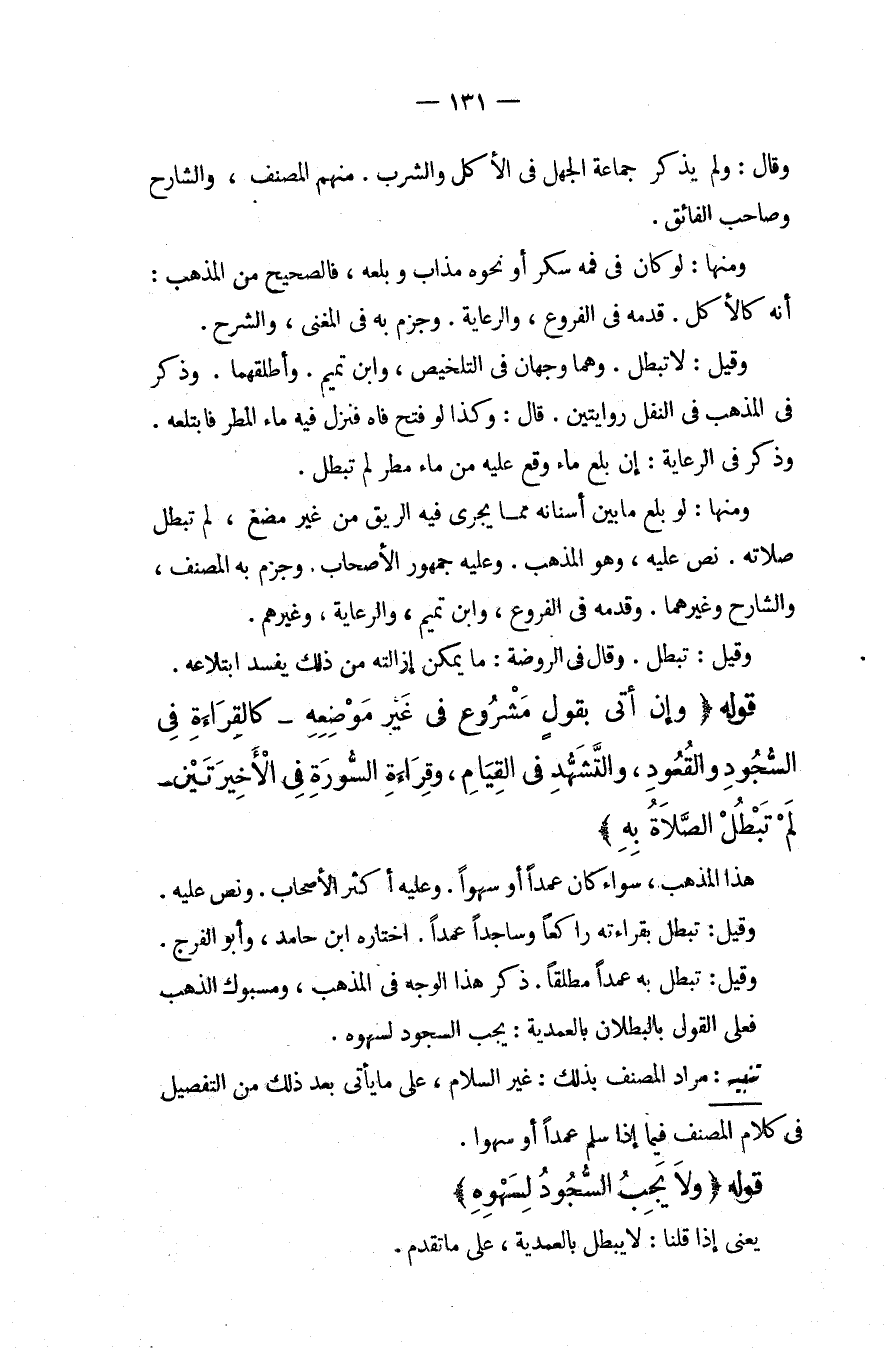 — ١٣١ —
وقال : ولم يذكر جماعة الجهل فى الأكل والشرب . منهم المصنف ، والشارح
وصاحب الفائق .
ومنها : لو كان فى فمه سكر أو نحوه مذاب وبلعه ، فالصحيح من المذهب :
أنه كالأكل . قدمه فى الفروع ، والرعاية . وجزم به فى المغنى ، والشرح .
وقيل : لا تبطل . وهما وجهان فى التلخيص ، وابن تميم . وأطلقهما . وذكر
فى المذهب فى النفل روايتين . قال : وكذا لو فتح فاه فنزل فيه ماء المطر فابتلعه .
وذكر فى الرعاية : إن بلع ماء وقع عليه من ماء مطر لم تبطل .
ومنها : لو بلع مابين أسنانه مما يجرى فيه الريق من غير مضغ ، لم تبطل
صلاته . نص عليه ، وهو المذهب . وعليه جمهور الأصحاب . وجزم به المصنف ،
والشارح وغيرهما . وقدمه فى الفروع ، وابن تميم ، والرعاية ، وغيرهم .
وقيل : تبطل . وقال فى الروضة : ما يمكن إزالته من ذلك يفسد ابتلاعه .
قوله ﴿ وإن أتى بقولٍ مَشْرُوع فى غَيْرِ مَوْضِعِهِ – كالقِرَاءَةِ فِى
السُّجُودِ والقُعُودِ ، والتَّشَهُّدِ فى القِيَامِ ، وقِرَاءَةِ السُّورَةِ فِى الْأَخِيرَتَيْنِ –
لَمْ تَبْطُلْ الصَّلَاةُ بِهِ ﴾
هذا المذهب ، سواء كان عمداً أو سهواً . وعليه أكثر الأصحاب . ونص عليه .
وقيل : تبطل بقراءته راكعاً وساجداً عمداً . اختاره ابن حامد ، وأبو الفرج .
وقيل : تبطل به عمداً مطلقاً . ذكر هذا الوجه فى المذهب ، ومسبوك الذهب
فعلى القول بالبطلان بالعمدية : يجب السجود لسهوه .
تنبيه : مراد المصنف بذلك : غير السلام ، على مايأتى بعد ذلك من التفصيل
فى كلام المصنف فيما إذا سلم عمداً أو سهوا .
قوله ﴿ ولاَ يَجِبُ السُّجُودُ لِسَهْوِهِ ﴾
يعنى إذا قلنا : لايبطل بالعمدية ، على ماتقدم .